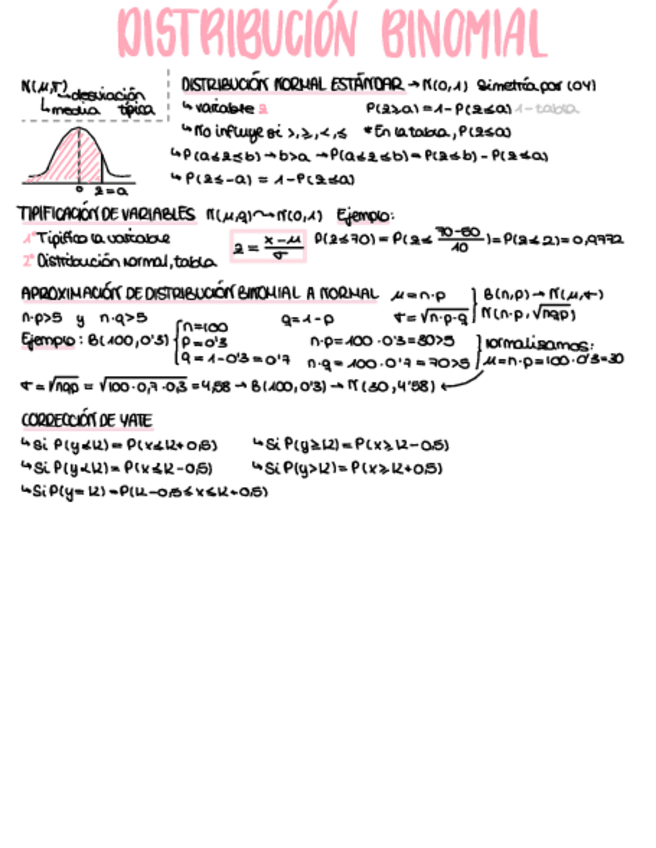 DISTRIBUCIÓN BINOMIAL
N(μ,σ)
→desviación típica
↳media
DISTRIBUCIÓN NORMAL ESTÁNDAR → N(0,1) Simetría por (OY)
↳ variable z
P(z≥a) = 1-P(z≤a) 1-tabla
↳ No influye si >,≥,<,≤ *En la tabla, P(z≤a)
↳ P(a≤z≤b) → b>a → P(a≤z≤b) = P(z≤b) - P(z≤a)
↳ P(z≤-a) = 1-P(z≤a)
0 z=a
TIPIFICACIÓN DE VARIABLES N(μ,σ) → N(0,1) Ejemplo:
1º Tipifico la variable
z = x-μ / σ
P(z≤70) = P(z≤ 70-50 / 10) = P(z≤2) = 0,9772
2º Distribución normal, tabla
APROXIMACIÓN DE DISTRIBUCIÓN BINOMIAL A NORMAL μ = n·p
B(n,p) → N(μ,σ)
n·p>5 y n·q>5 q = 1-p σ = √n·p·q
N(n·p, √nqp)
Ejemplo: B(100,0'3)
n=100
p=0'3
q = 1-0'3 = 0'7
n·p = 100·0'3 = 30>5
n·q = 100·0'7 = 70>5
normalisamos:
μ = n·p = 100·0'3 = 30
σ = √nqp = √100·0,7·0,3 = 4,58 → B(100,0'3) → N(30,4'58)
CORRECCIÓN DE YATE
↳ Si P(y≤k) = P(x≤k+0,5) ↳ Si P(y≥k) = P(x≥k-0,5)
↳ Si P(y<k) = P(x≤k-0,5) ↳ Si P(y>k) = P(x≥k+0,5)
↳ Si P(y=k) = P(k-0,5≤x≤k+0,5)